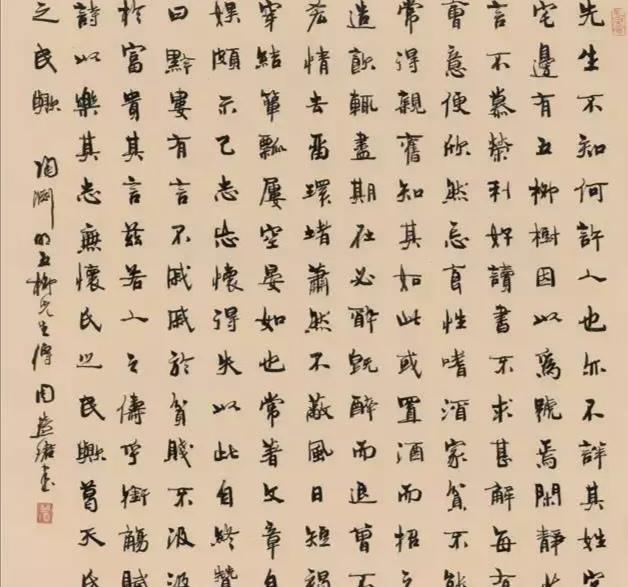 先生不知何許人也亦不詳其姓字
宅邊有五柳樹因以為號焉閑靜少
言不慕榮利好讀書不求甚解每有
會意便欣然忘食性嗜酒家貧不能
常得親舊知其如此或置酒而招之
造飲輒盡期在必醉既醉而退曾不
吝情去留環堵蕭然不蔽風日短褐
穿結簞瓢屢空晏如也常著文章自
娛頗示己志忘懷得失以此自終贊
曰黔婁有言不戚戚於貧賤不汲汲
於富貴其言茲若人之儔乎銜觴賦
詩以樂其志無懷氏之民歟葛天氏
之民歟 陶淵明五柳先生傳 周書